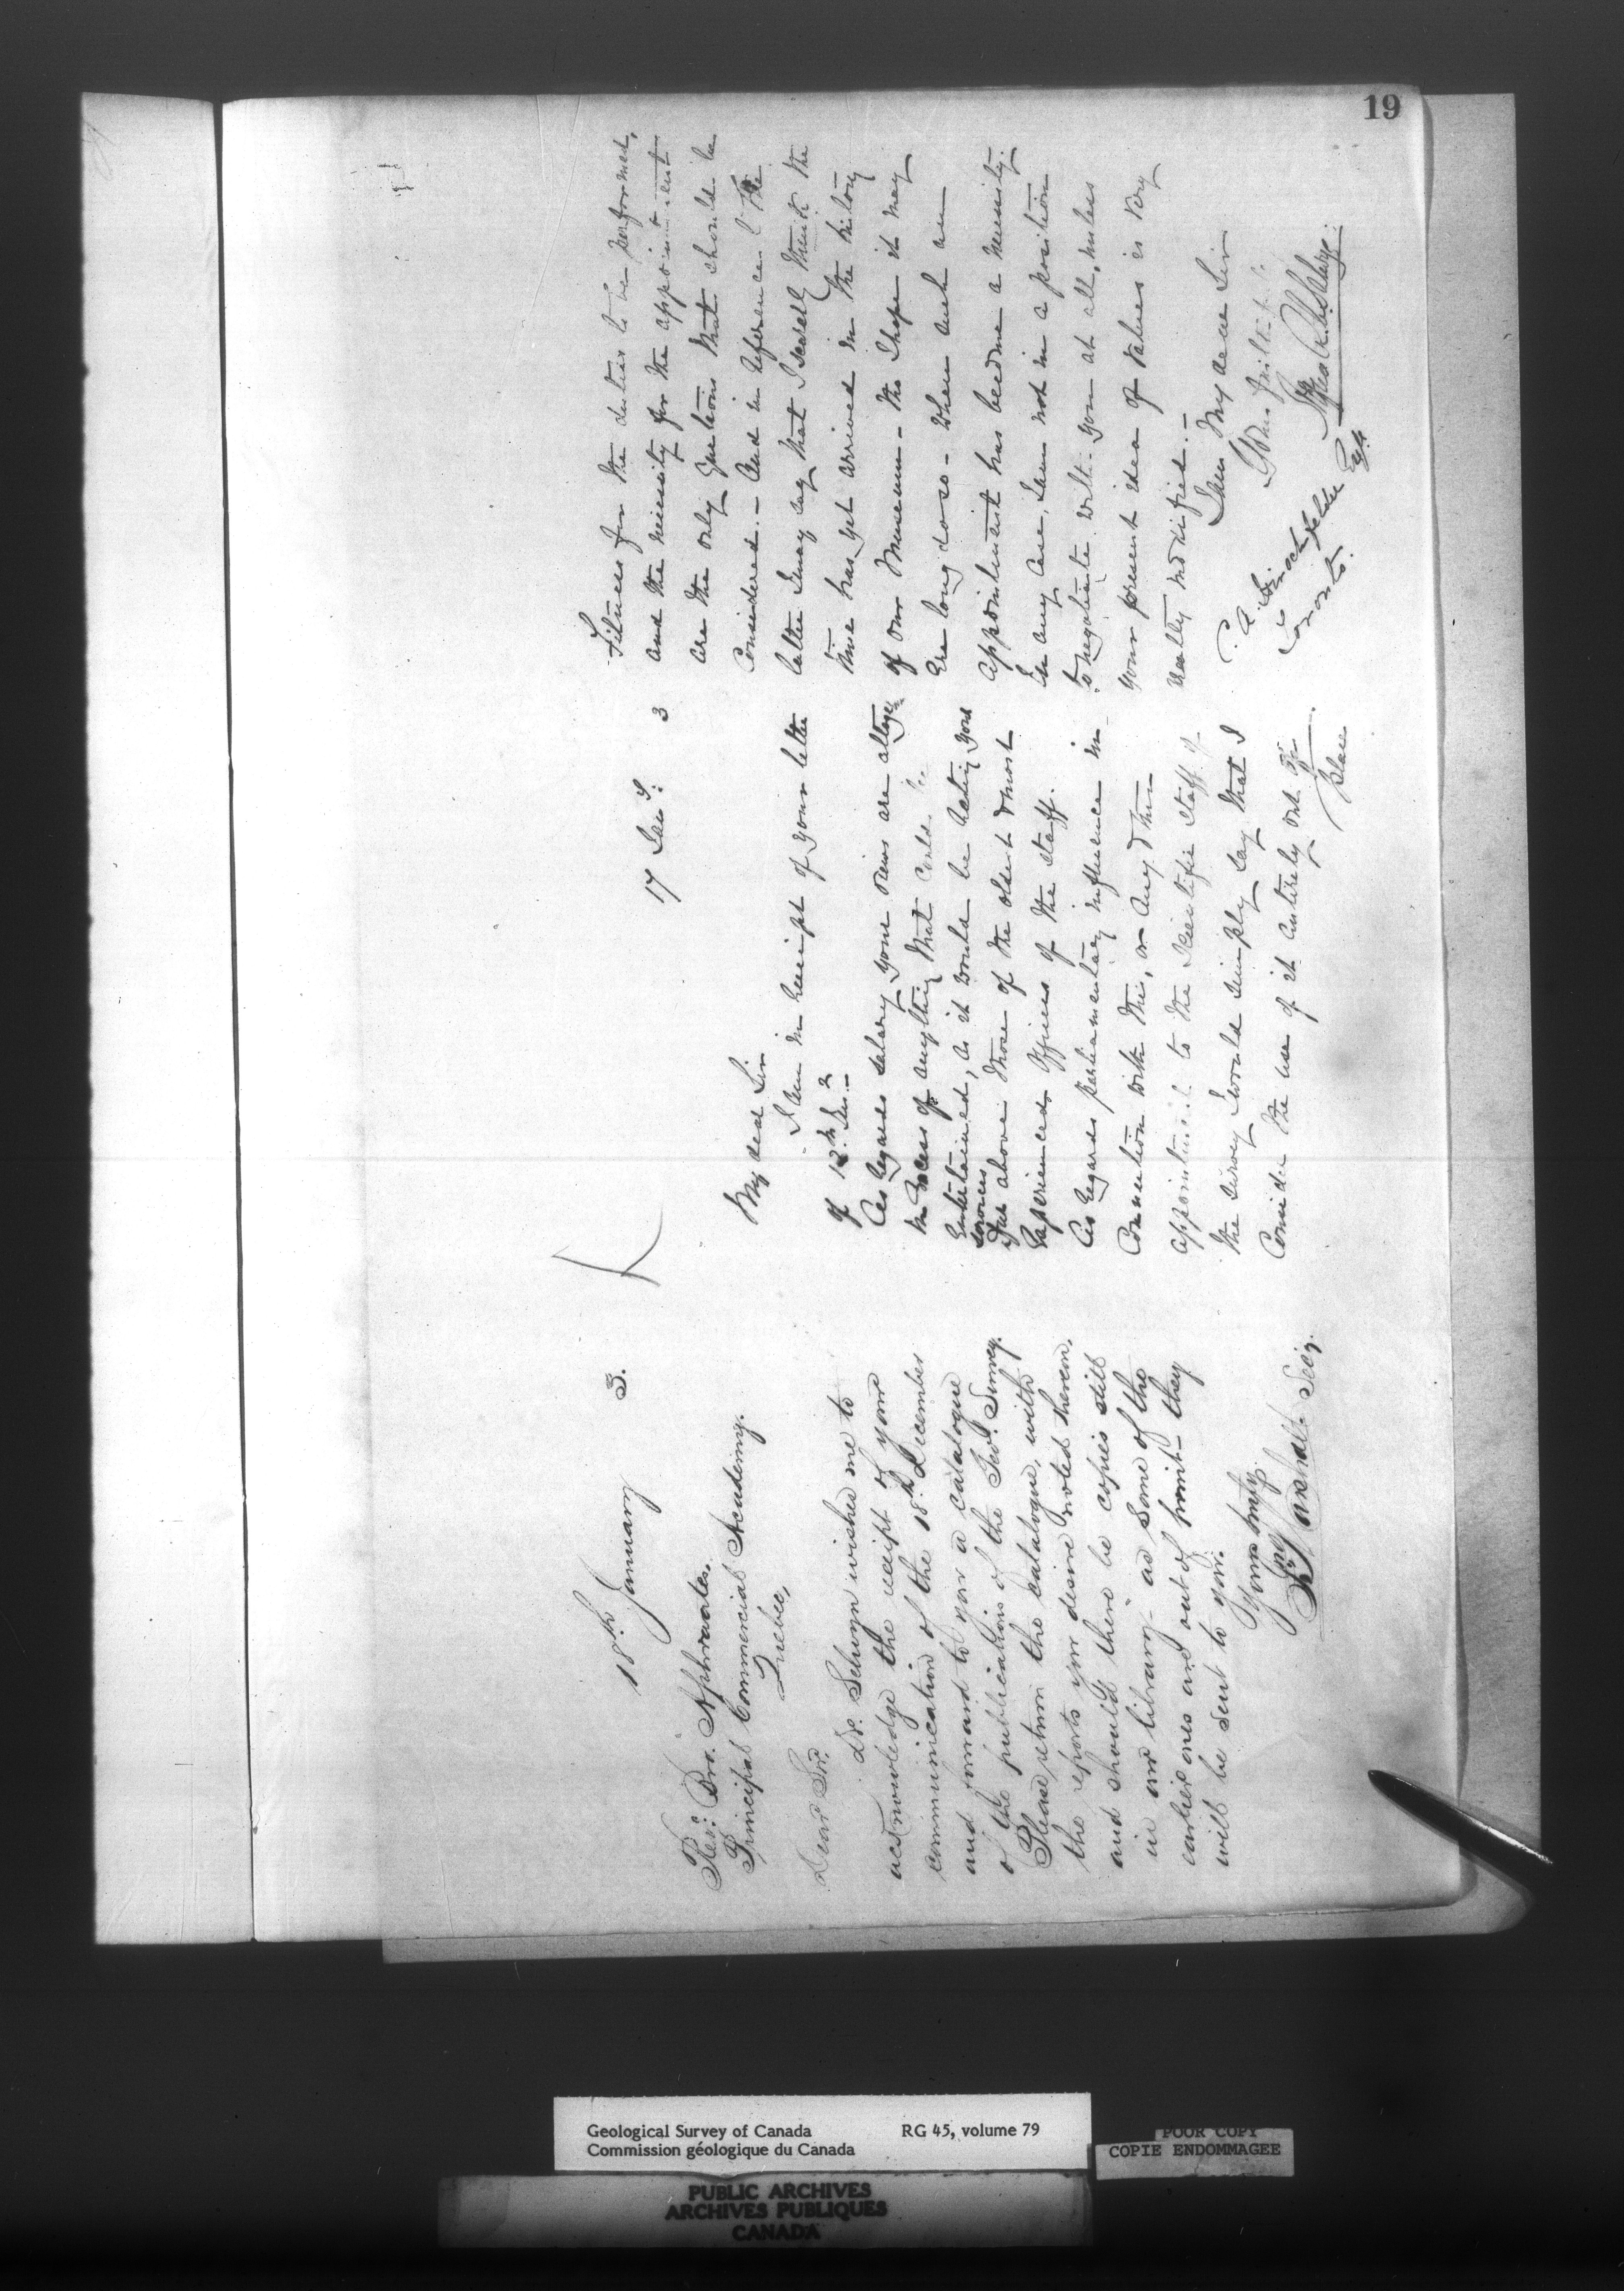 19
18th January 3.
Revd. Bro. Aphraates.
Principal Commercial Academy.
Quebec,
Dear Sir.
Dr. Selwyn wishes me to
acknowledge the receipt of your
communication of the 18th December
and forward to you a catalogue
of the publications of the Geo. Survey.
Please return the catalogue, with
the reports you desire noted therein,
and should there be copies still
in our library - as some of the
earlier ones are out of print - they
will be sent to you.
Yours truly
Jno Marshall Secy.
17 Jany. 3
My dear Sir
I am in receipt of your letter
of 12th
As regards salary your views are altogr
in excess of anything that could be
entertained, as it would be rating your
services far above those of the oldest & most
experienced officers of the staff.
As regards parliamentary influence in
connection with this, or any other
appointment to the Scientific Staff of
the survey I would simply say that I
consider the use of it entirely out of
place
Fitness for the duties to be performed,
and the necessity for the appointment
are the only questions that should be
considered. - And in reference to the
latter I may say that I scarcely think the
time has yet arrived in the history
of our Museum - tho I hope it may
ere long do so - when such an
appointment has become a necessity.
In any case, I am not in a position
to negotiate with you at all, unless
your present idea of values is very
greatly modified. -
I am My dear Sir
Yours faithfully
Toronto.
Geological Survey of Canada RG 45, volume 79
Commission géologique du Canada
POOR COPY
COPIE ENDOMMAGEE
PUBLIC ARCHIVES
ARCHIVES PUBLIQUES
CANADA